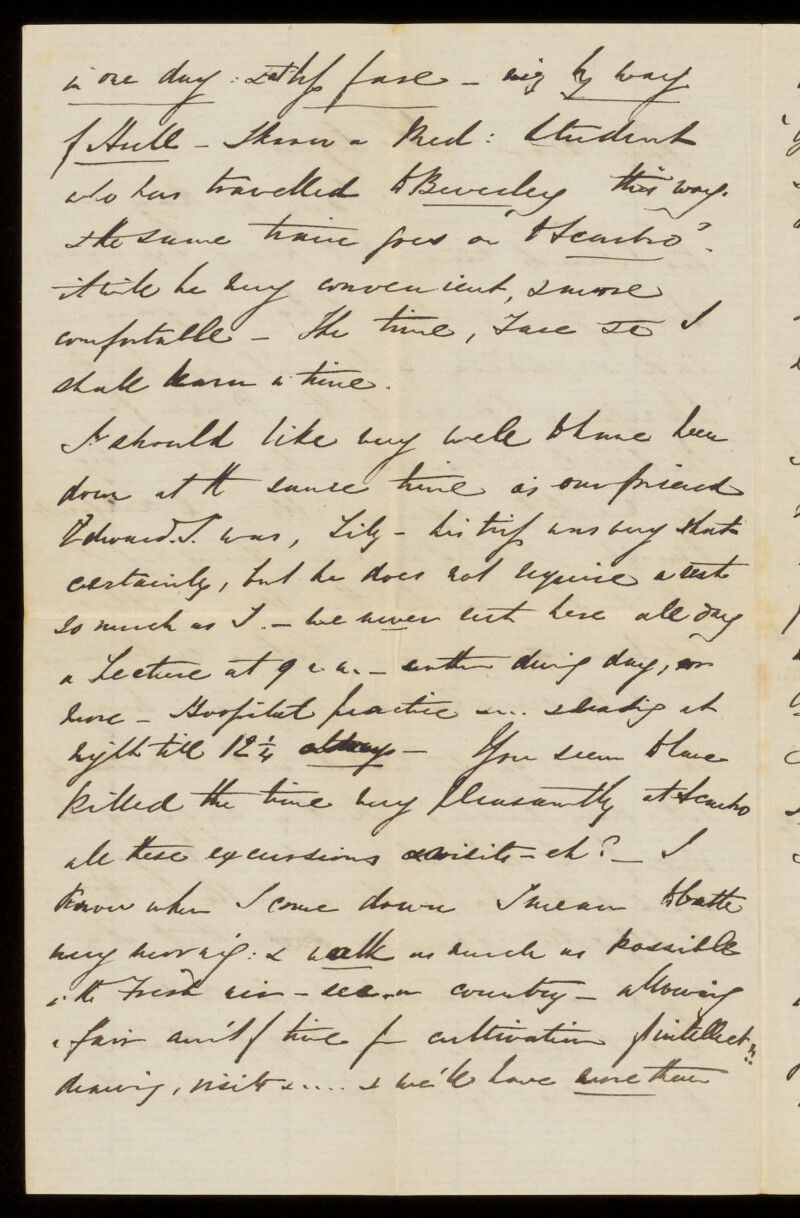 in one day: & at hf fare - viz by way
of Hull - I know a Med: Student
who has travelled to Beverley this way.
& the same train goes on to Scarbro'.
it will be very convenient, & more
comfortable - The time, fare &c I
shall learn in time.
I should like very well to have been
down at the same time as our friend
Edward. T. was, Lily - his trip was very short
certainly, but he does not require a rest
so much as I. - we never rest here all day
a Lecture at 9 a.m. - another during day, or
more - Hospital practice &c... & reading at
night till 12 1/4 always - You seem to have
killed the time very pleasantly at Scarbro
all these excursions & visits - eh? - I
know when I come down I mean to bathe
every morning: & walk as much as possible
in the Fresh air - sea or country - allowing
a fair am't of time for cultivation of intellect
drawing, visits &.... & we'll have more than